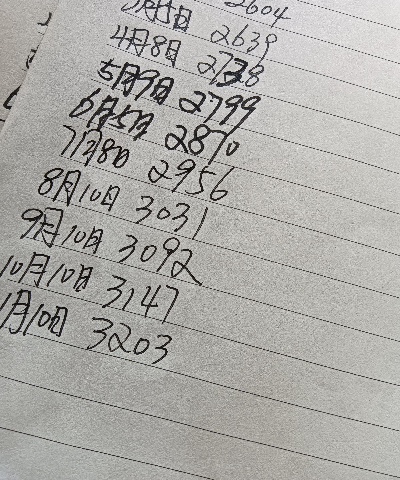 2604
月15日 2639
4月8日 2738
5月9日 2799
6月5日 2870
7月8日 2956
8月10日 3031
9月10日 3092
10月10日 3147
1月10日 3203